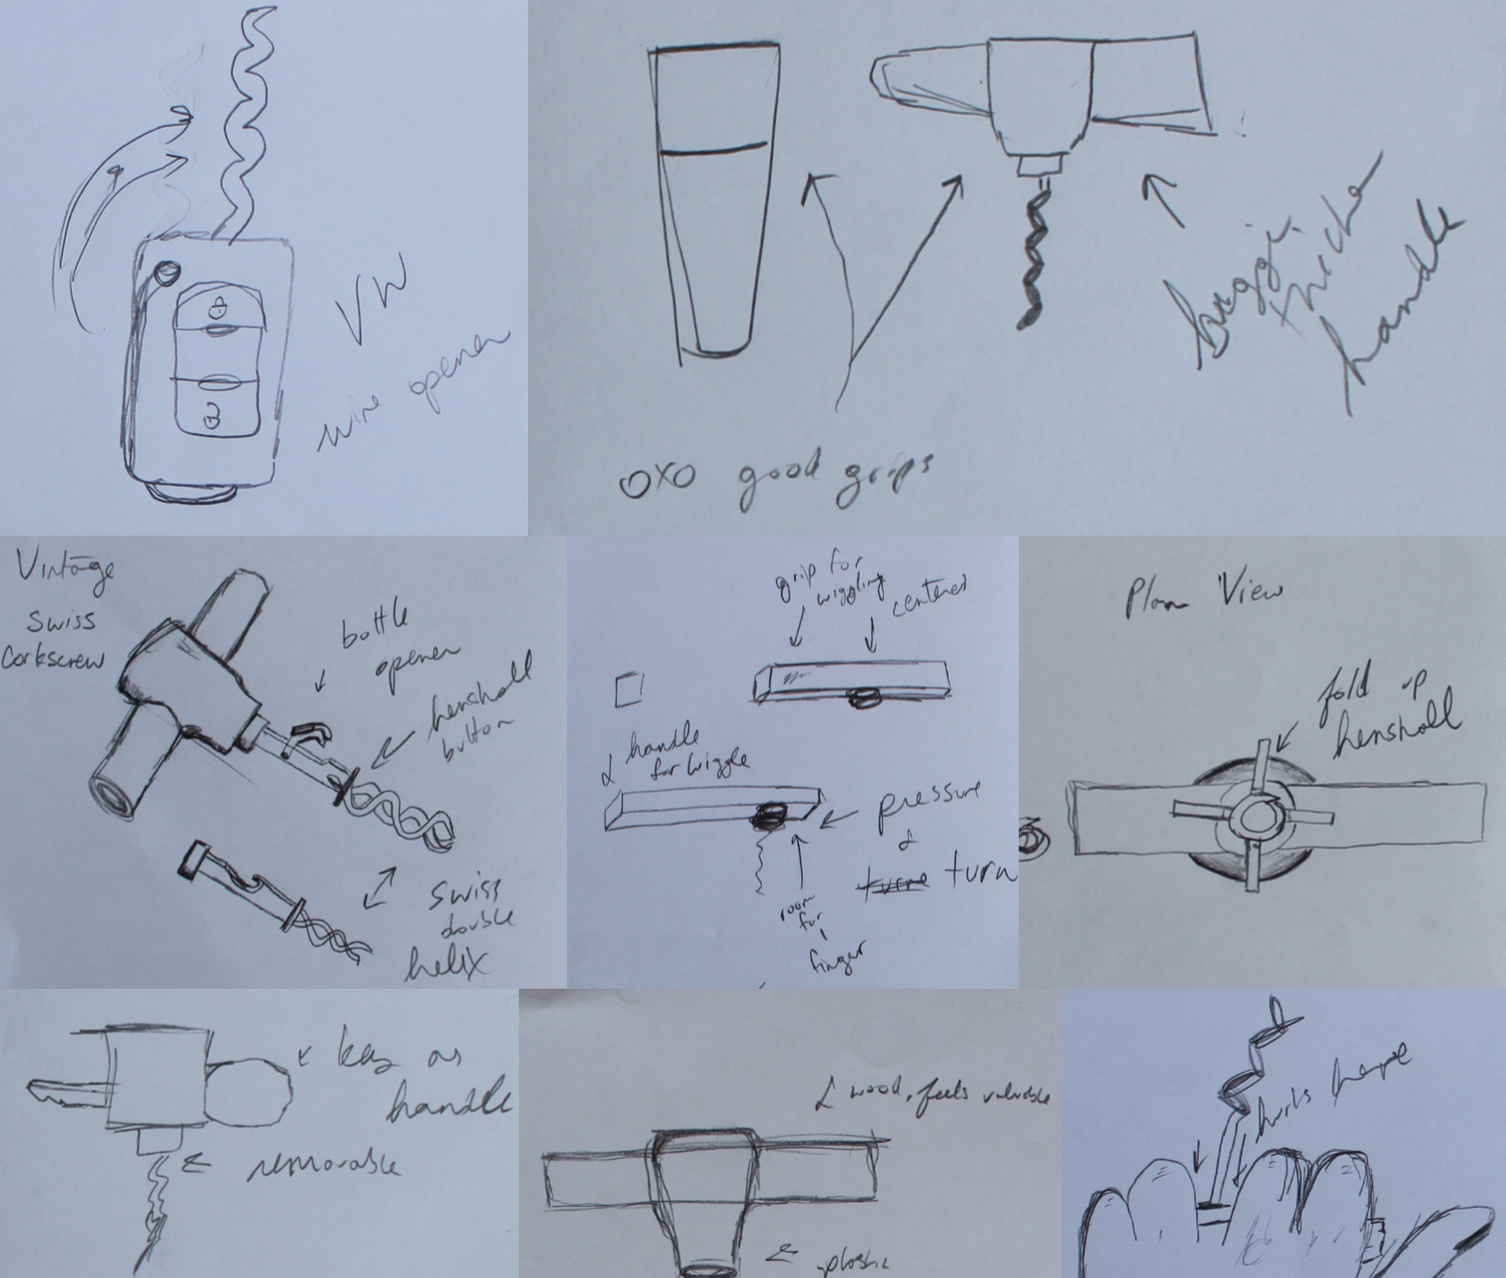 VW
wine opener
bigger
thicker
handle
OXO good grips
Vintage
Swiss
Corkscrew
bottle
opener
henshall
button
Swiss
double
helix
grip for
wiggling
centered
handle
for wiggle
pressure
&
turn
room
for
1
finger
Plan View
fold up
henshall
key as
handle
removable
wood, feels valuable
plastic
hurts here